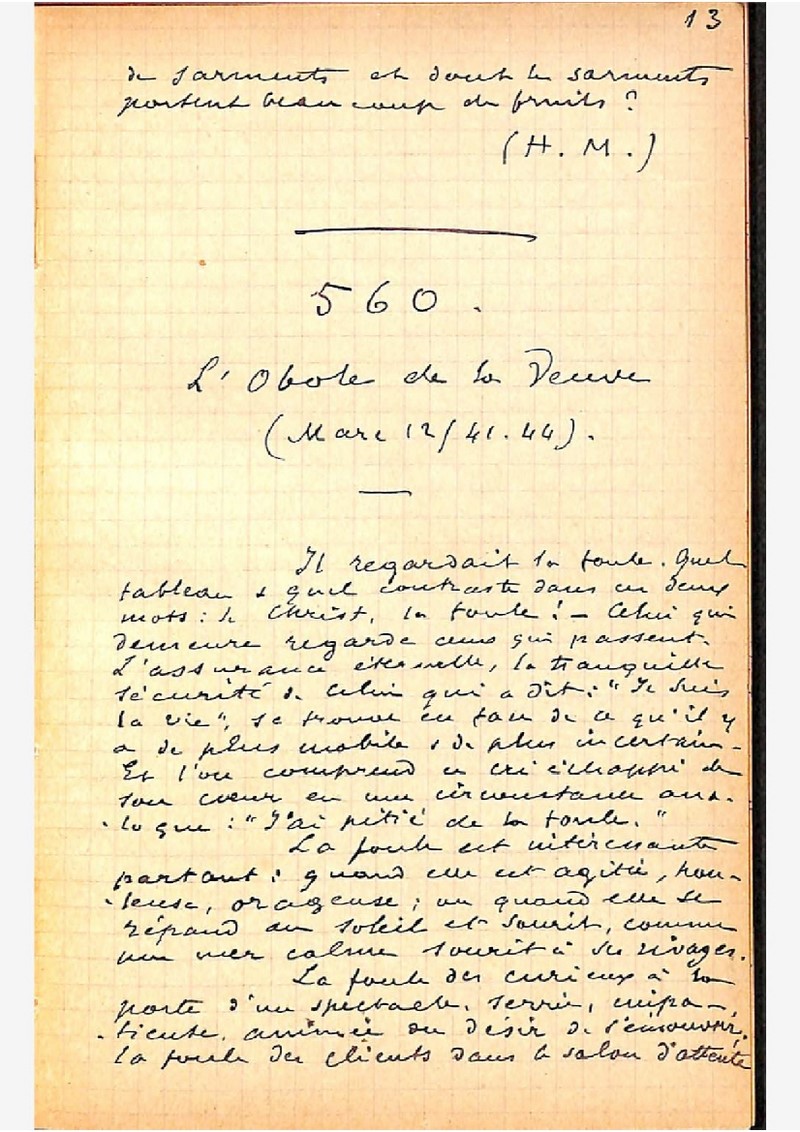 13
de sarments et dont les sarments
portent beaucoup de fruits ?
(H. M.)
560.
L'Obole de la Veuve
(Marc 12/41.44).
Il regardait la foule. Quel
tableau & quel contraste dans ces deux
mots : le Christ, la foule ! – Celui qui
demeure regarde ceux qui passent.
L'assurance éternelle, la tranquille
sécurité de Celui qui a dit : "Je suis
la vie", se trouve en face de ce qu'il y
a de plus mobile & de plus incertain –
Et l'on comprend ce cri échappé de
son cœur en une circonstance ana-
logue : "J'ai pitié de la foule."
La foule est intéressante
partout : quand elle est agitée, hou-
leuse, orageuse ; ou quand elle se
répand au soleil et sourit, comme
une mer calme sourit à ses rivages.
La foule des curieux à la
porte d'un spectacle, serrée, impa-
tiente, animée du désir de s'émouvoir,
la foule des clients dans le salon d'attente